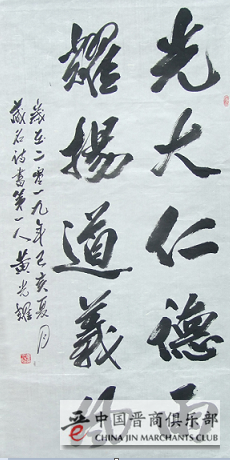 光大仁德
耀揚道義
歲在二零一九年己亥夏月
藏名诗書第一人黄光耀
晋
中国晋商俱乐部
CHINA JIN MARCHANTS CLUB